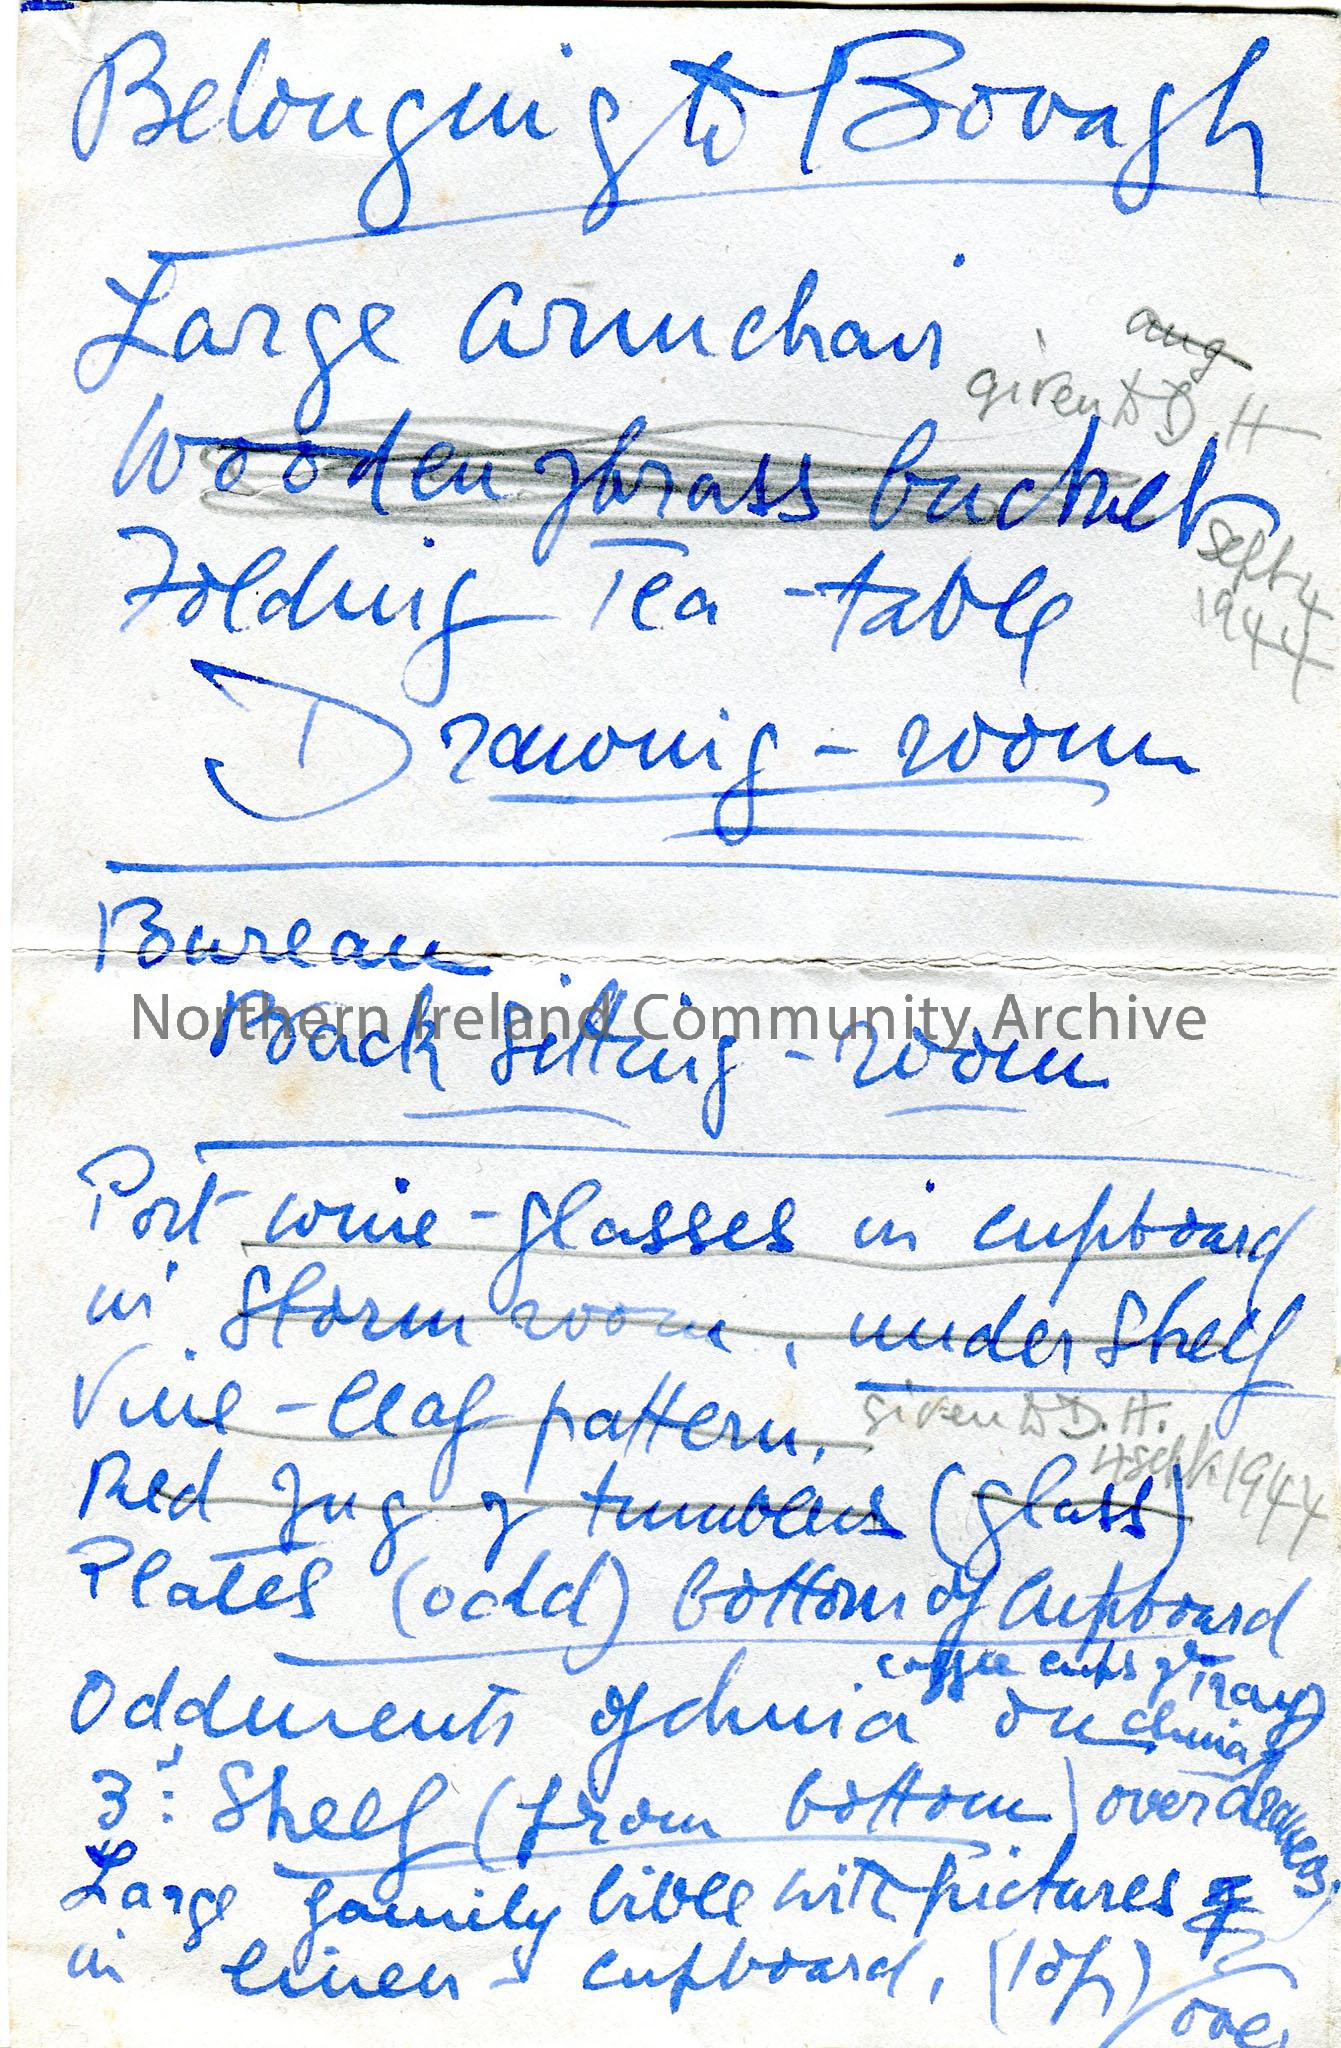 Belonging to Bovagh
Large Armchair
aug
given to D.H
Wooden & brass bucket
Sept 4
1944
Folding Tea-table
Drawing-room
Bureau
Northern Ireland Community Archive
Back Sitting-room
Port wine-glasses in cupboard
in Storm room, under Shelf
Vine-leaf pattern.
given to D.H.
4 Sept 1944
Red Jug & tumblers (glass)
Plates (odd) bottom of Cupboard
coffee cups &
Tray
Oddments of china on china
3rd Shelf (from bottom) over drawers
Large family bible with pictures &
in linen cupboard, (top)
over